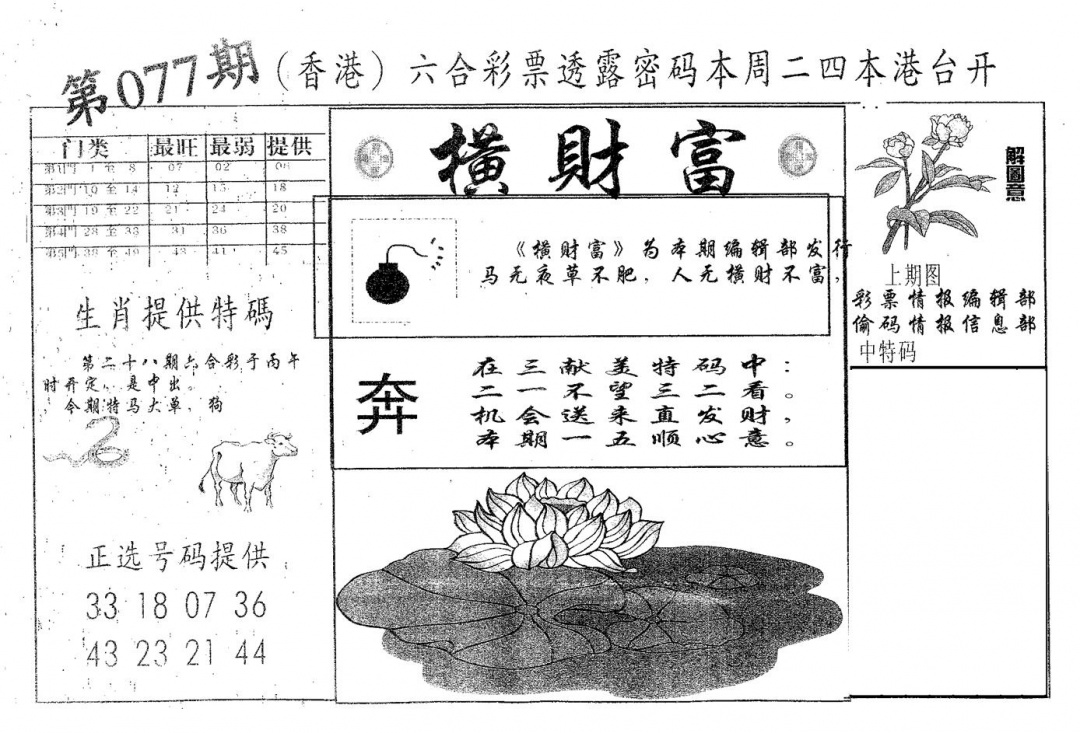 第077期(香港)六合彩票透露密码本周二四本港台开
门类 最旺 最弱 提供
第1門 1 至 8 07 02 06
第2門 10 至 14 12 15 18
第3門 19 至 22 21 24 20
第4門 28 至 33 31 36 38
第5門 38 至 49 43 41 45
生肖提供特碼
第二十八期六合彩于丙午
时开定，是中出。
，令期特马大单，狗
正选号码提供
33 18 07 36
43 23 21 44
橫財富
《横财富》为本期编辑部发行
马无夜草不肥，人无横财不富，
奔
在三献美特码中：
二一不望三二看。
机会送来直发财，
本期一五顺心意。
解圖意
上期图
彩票情报编辑部
偷码情报信息部
中特码